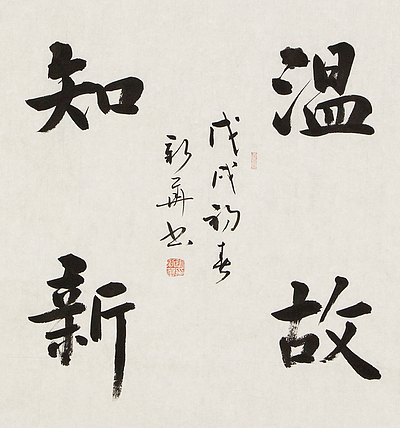 温故
知新
戊戌初春
新华书